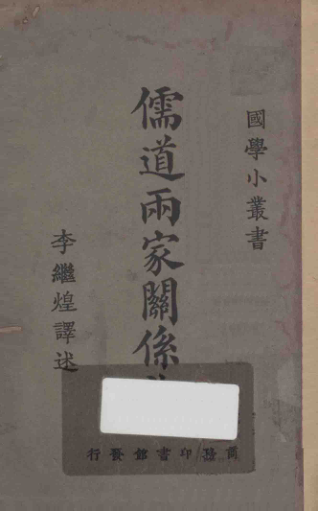 國學小叢書
儒道兩家關係
李繼煌譯述
商務印書館發行